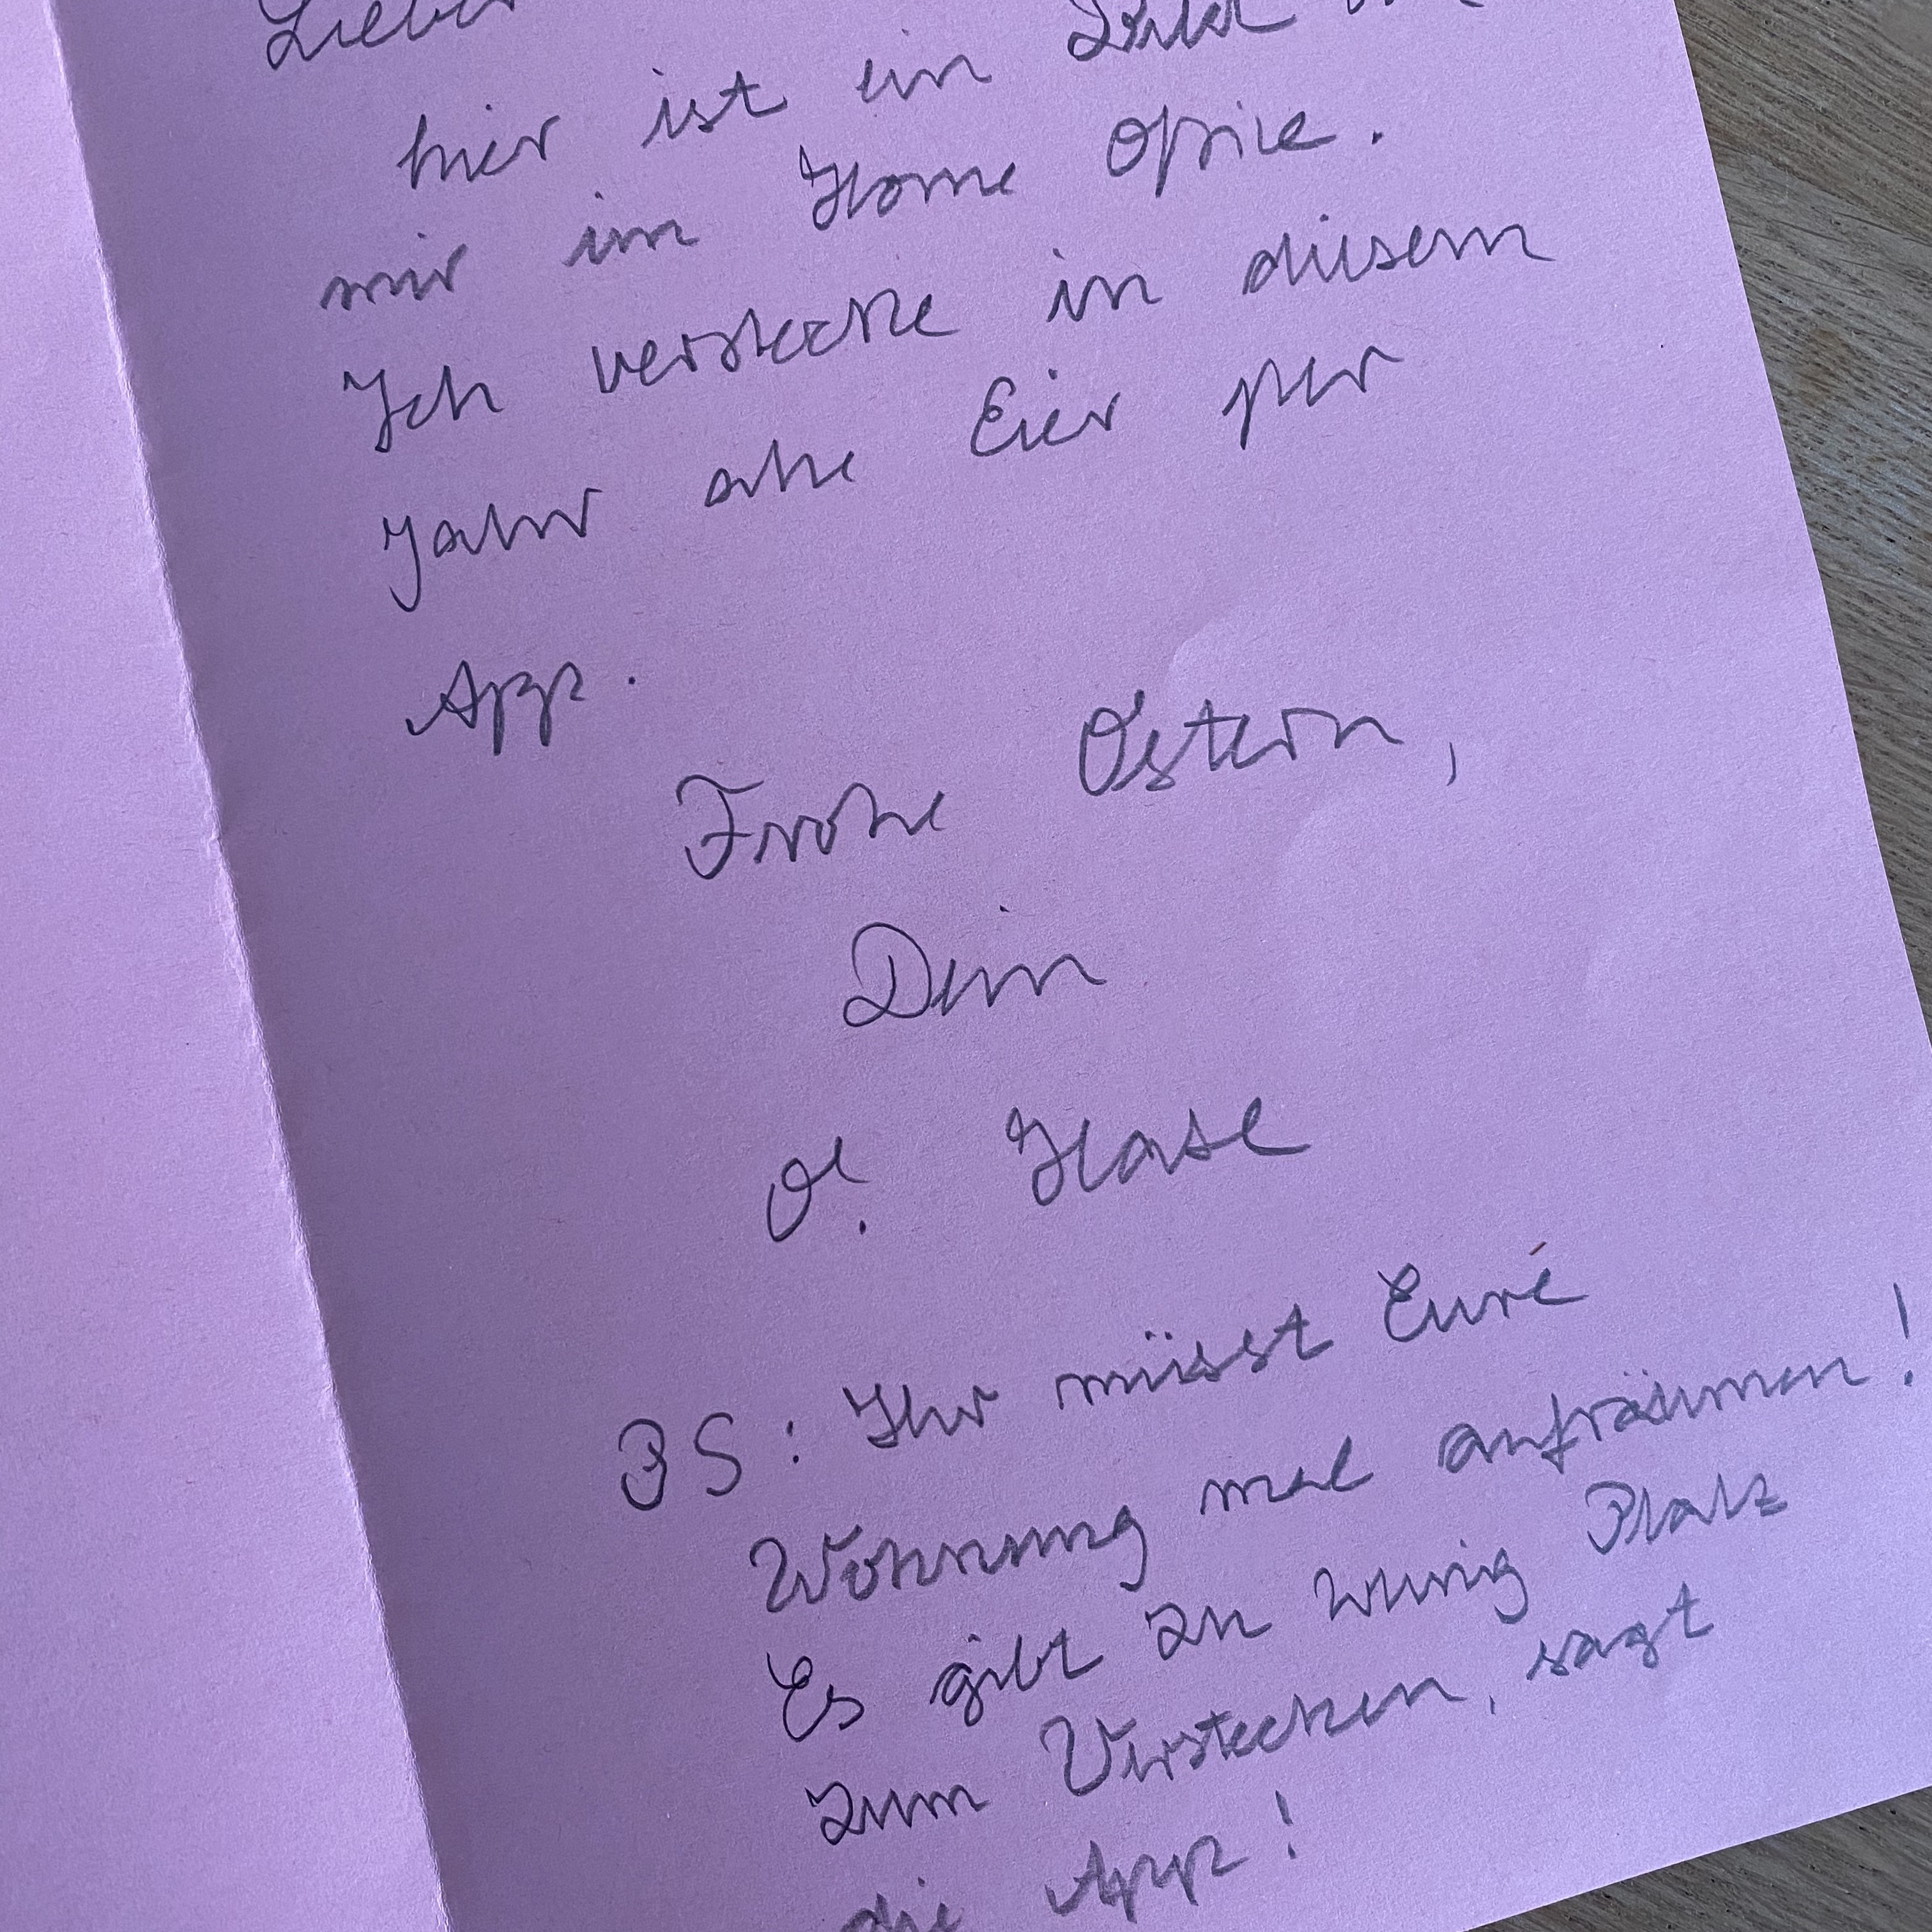 Lieber
hier ist ein Bild von
mir im Home Office.
Ich verstecke in diesem
Jahr alle Eier per
App.
Frohe Ostern,
Dein
O. Hase
PS: Ihr müsst Eure
Wohnung mal aufräumen!
Es gibt zu wenig Platz
zum Verstecken, sagt
die App!